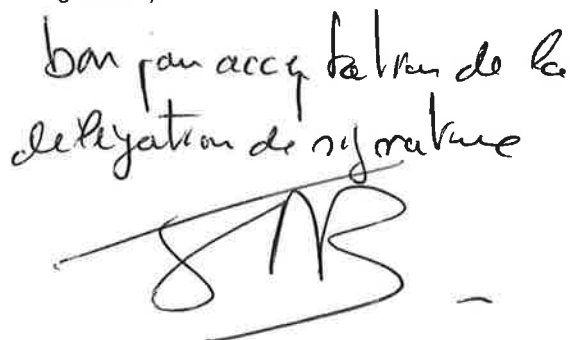 bon pour acceptation de la
délégation de signature